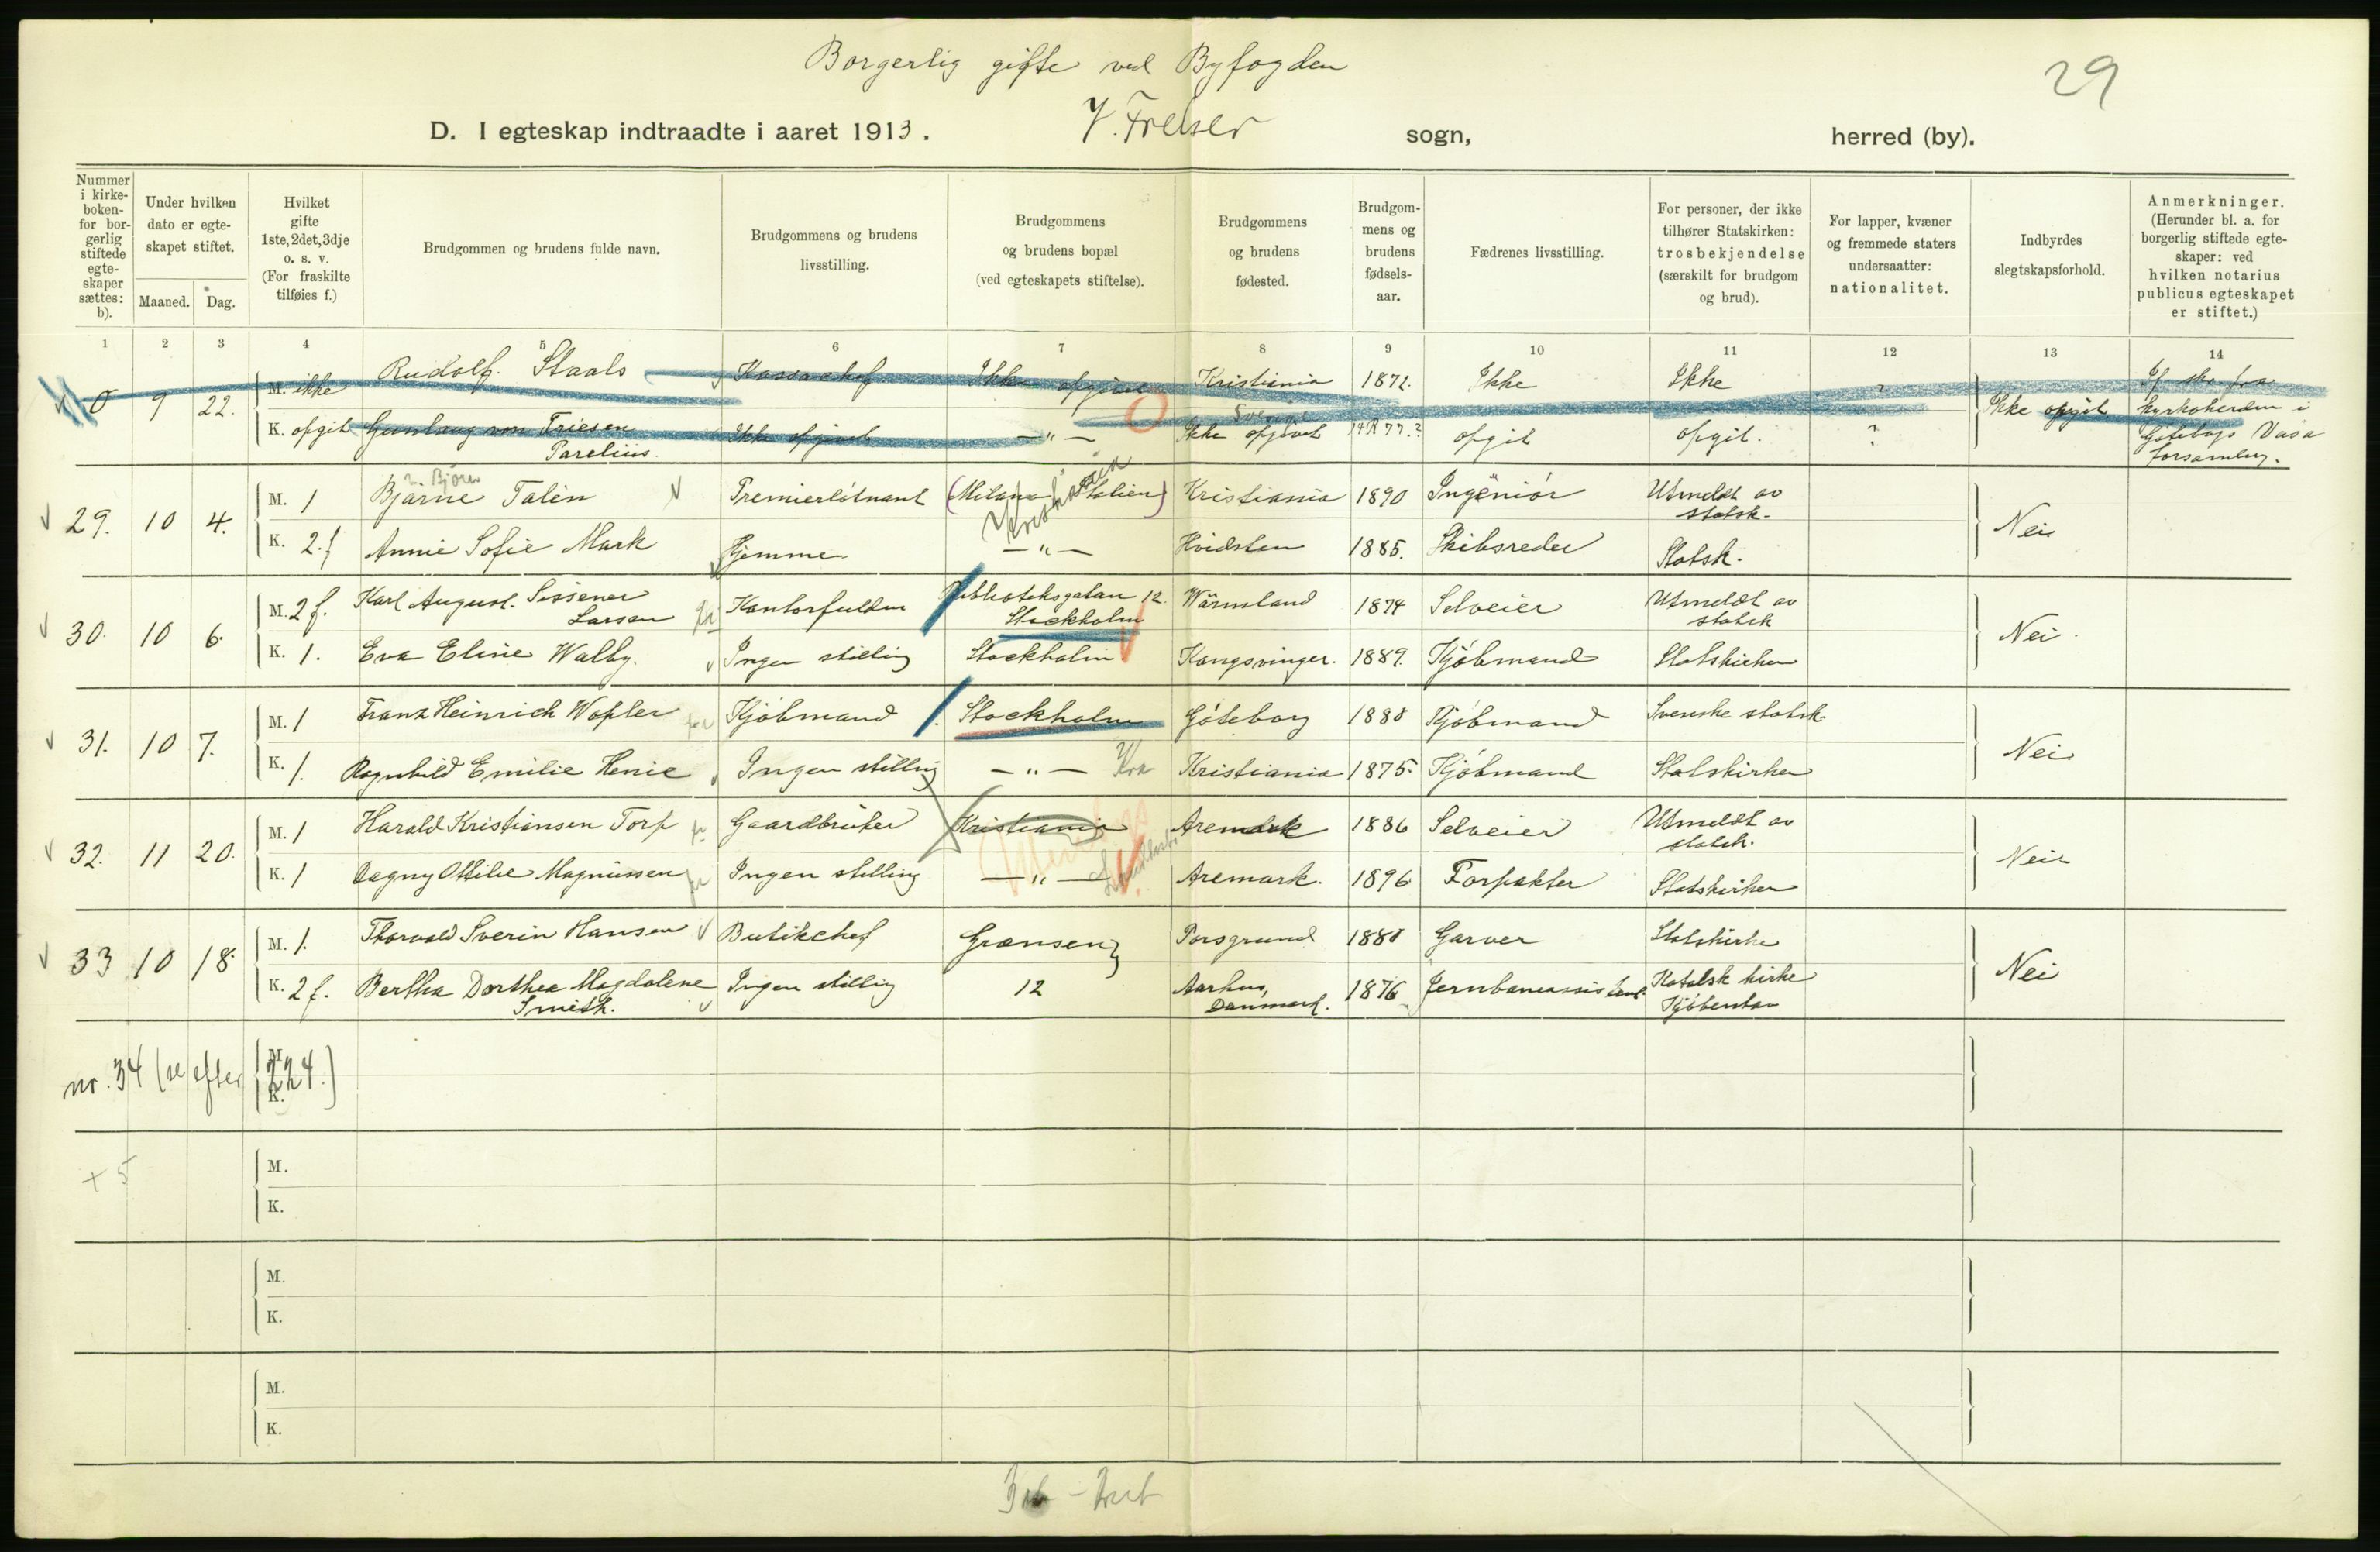 Borgerlig gifte ved Byfogden
29
D. I egteskap indtraadte i aaret 1913. V. Frelser sogn, herred (by).
Nummer i kirke-boken- for bor-gerlig stiftede egte-skaper sættes: b).
Under hvilken dato er egte-skapet stiftet.
Maaned. Dag.
Hvilket gifte 1ste, 2det, 3dje o. s. v. (For fraskilte tilføies f.)
Brudgommen og brudens fulde navn.
Brudgommens og brudens livsstilling.
Brudgommens og brudens bopæl (ved egteskapets stiftelse).
Brudgommens og brudens fødested.
Brudgom-mens og brudens fødsels-aar.
Fædrenes livsstilling.
For personer, der ikke tilhører Statskirken: trosbekjendelse (særskilt for brudgom og brud).
For lapper, kvæner og fremmede staters undersaatter: nationalitet.
Indbyrdes slegtskapsforhold.
Anmerkninger. (Herunder bl. a. for borgerlig stiftede egte-skaper: ved hvilken notarius publicus egteskapet er stiftet.)
1 2 3 4 5 6 7 8 9 10 11 12 13 14
0 9 22. M. ikke Rudolf Staals Kassachef Ikke opgivet Kristiania 1872. Ikke Ikke ?
K. opgit Gunlaug von Friesen Parelius Ikke opgivet — " — Ikke opgivet Sverige 77.? opgit opgit. ? Ikke opgit
kyrkoherden i Göteborgs Vasa forsamling.
29. 10 4. M. 1 Bjarne Talén Premierløtnant (Milano Italien) Kristiania Kristiania 1890 Ingeniør Utmeldt av statsk.
K. 2.f Annie Sofie Mark Hjemme — " — Hvidsten 1885. Skibsreder Statsk. Nei
30. 10 6. M. 2 f. Karl August Sissener Larsen Kontorfuldm Biblioteksgatan 12. Stockholm Wärmland 1874 Selveier Utmeldt av statsk
K. 1. Eva Eline Walby. Ingen stilling Stockholm Kongsvinger. 1889. Kjøbmand Statskirken Nei.
31. 10 7. M. 1 Franz Heinrich Wopler Kjøbmand Stockholm Göteborg 1880 Kjøbmand Svenske statsk.
K. 1. Ragnhild Emilie Henie Ingen stilling — " — Kra Kristiania 1875. Kjøbmand Statskirken Nei
32. 11 20. M. 1 Harald Kristiansen Torp Gaardbruker Kristiania Aremark 1886 Selveier Utmeldt av statsk.
K. 1 Dagny Ottilie Magnussen Ingen stilling — " — Aremark. 1896 Forpakter Statskirken Nei
33 10 18. M. 1. Thorvald Sverin Hansen Butikchef Grænsen Porsgrund 1880 Garver Statskirke
K. 2 f. Bertha Dorthea Magdalene Smith. Ingen stilling 12 Aarhus, Danmark. 1876 Jernbaneassistent. Katolsk kirke Kjøbenhav Nei
nr. 34 (se efter M. K. 224.)
+ 5 M.
K.
M.
K.
M.
K.